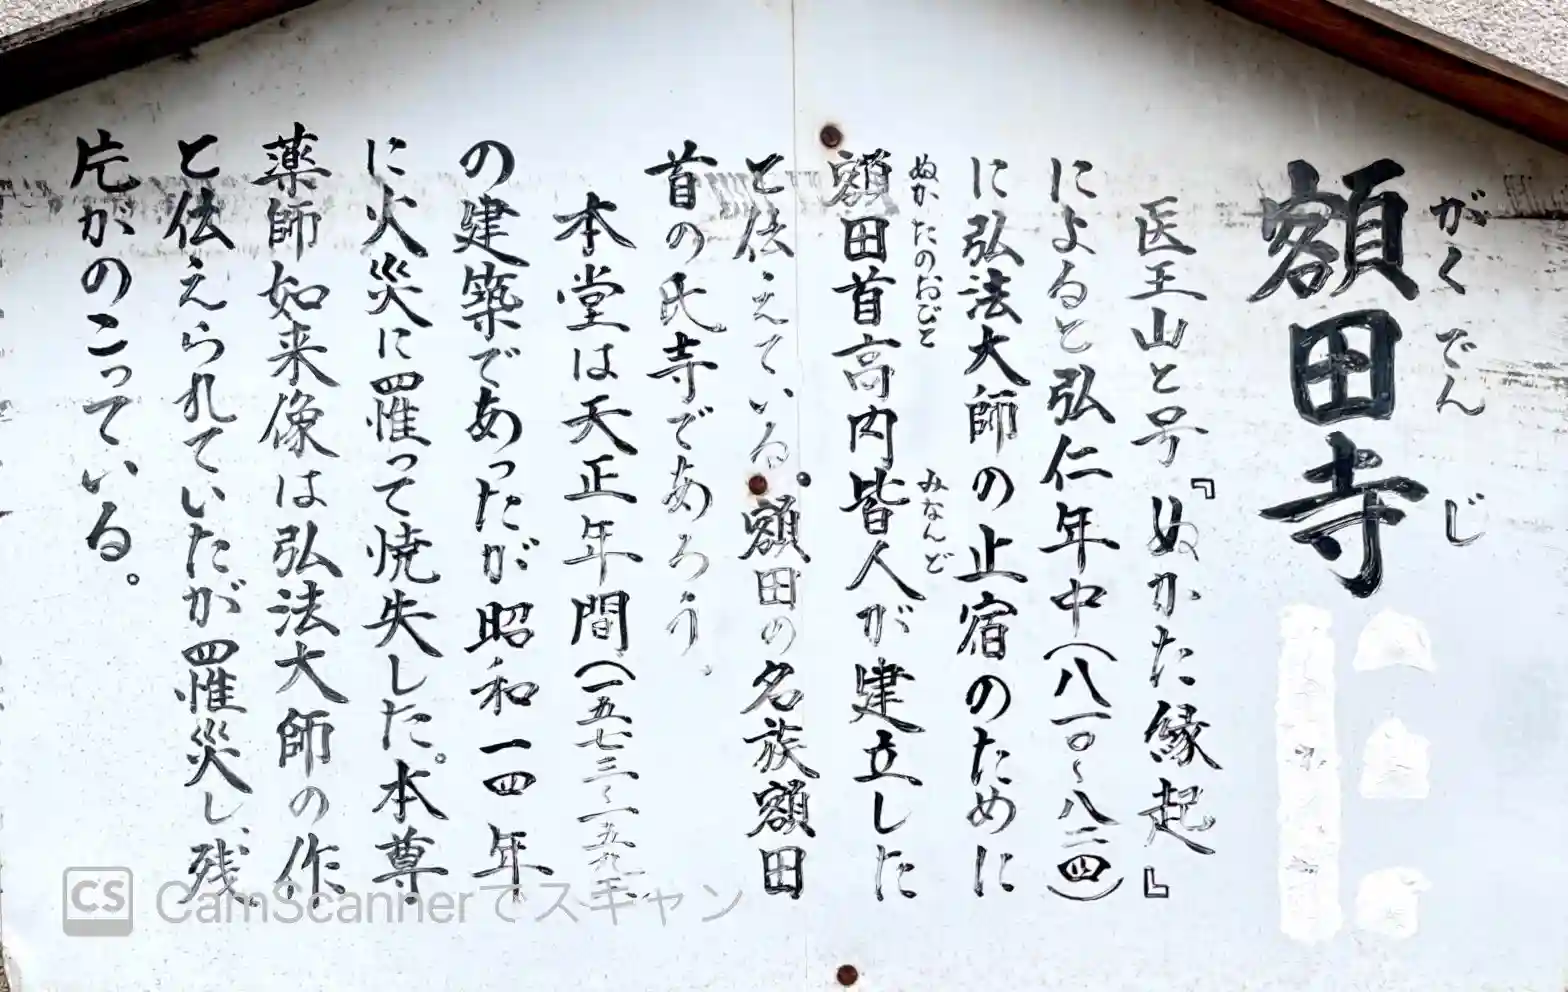 額田寺
がくでんじ
医王山と号『ぬかた縁起』
によると弘仁年中(八一〇〜八二四)
に弘法大師の止宿のために
額田首高内皆人が建立した
ぬかたのおびと
みなんど
と伝えている。額田の名族額田
首の氏寺であろう。
本堂は天正年間(一五七三〜一五九一)
の建築であったが昭和一四年
に火災に罹って焼失した。本尊
薬師如来像は弘法大師の作
と伝えられていたが罹災し、残
片がのこっている。
CS CamScannerでスキャン